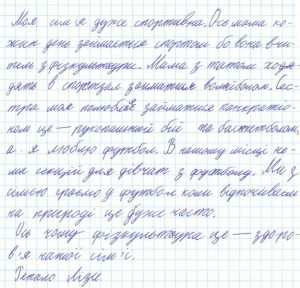 Моя сім'я дуже спортивна. Ось мама ко-
жен день займається спортом бо вона вчи-
тель з фізкультури. Мама з татом ходя-
дять в спортзал займатися волейболом. Сес-
тра моя полюбляє займатися панкратіо-
ном це — рукопашний бій та баскетболом,
а я люблю футбол. В нашому місці не-
ма секцій для дівчат з футболу. Ми з
сім'єю граємо у футбол коли відпочиваєм
на природі це дуже часто.
Ось чому фізкультура це — здоро-
в'я нашої сім'ї.
Гепало Лізи.